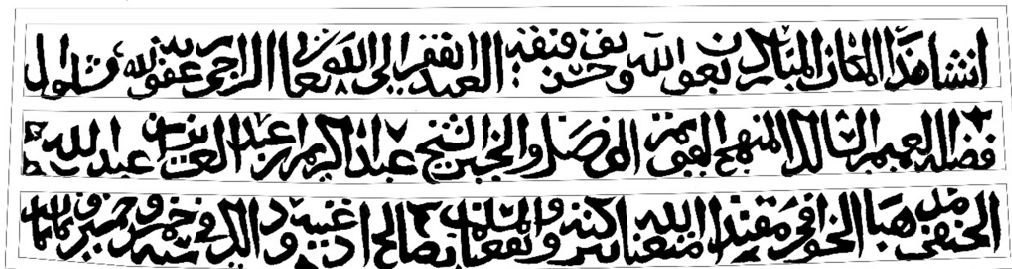 انشا هذا المكان المبارك بعون الله وحسن توفيقه العبد الفقير الى الله تعالى الراجي عفو ربه وشمول
فضله العميم السالك المنهج القويم الفضل والخير الشيخ عبد الكريم بن عبد العزيز بن عبد الله
الحنفي مذهبا الخوافي الله والمسلمين ونفعنا بصالح ادعيته وذلك في سنة خمس وخمسين وثمانمائة